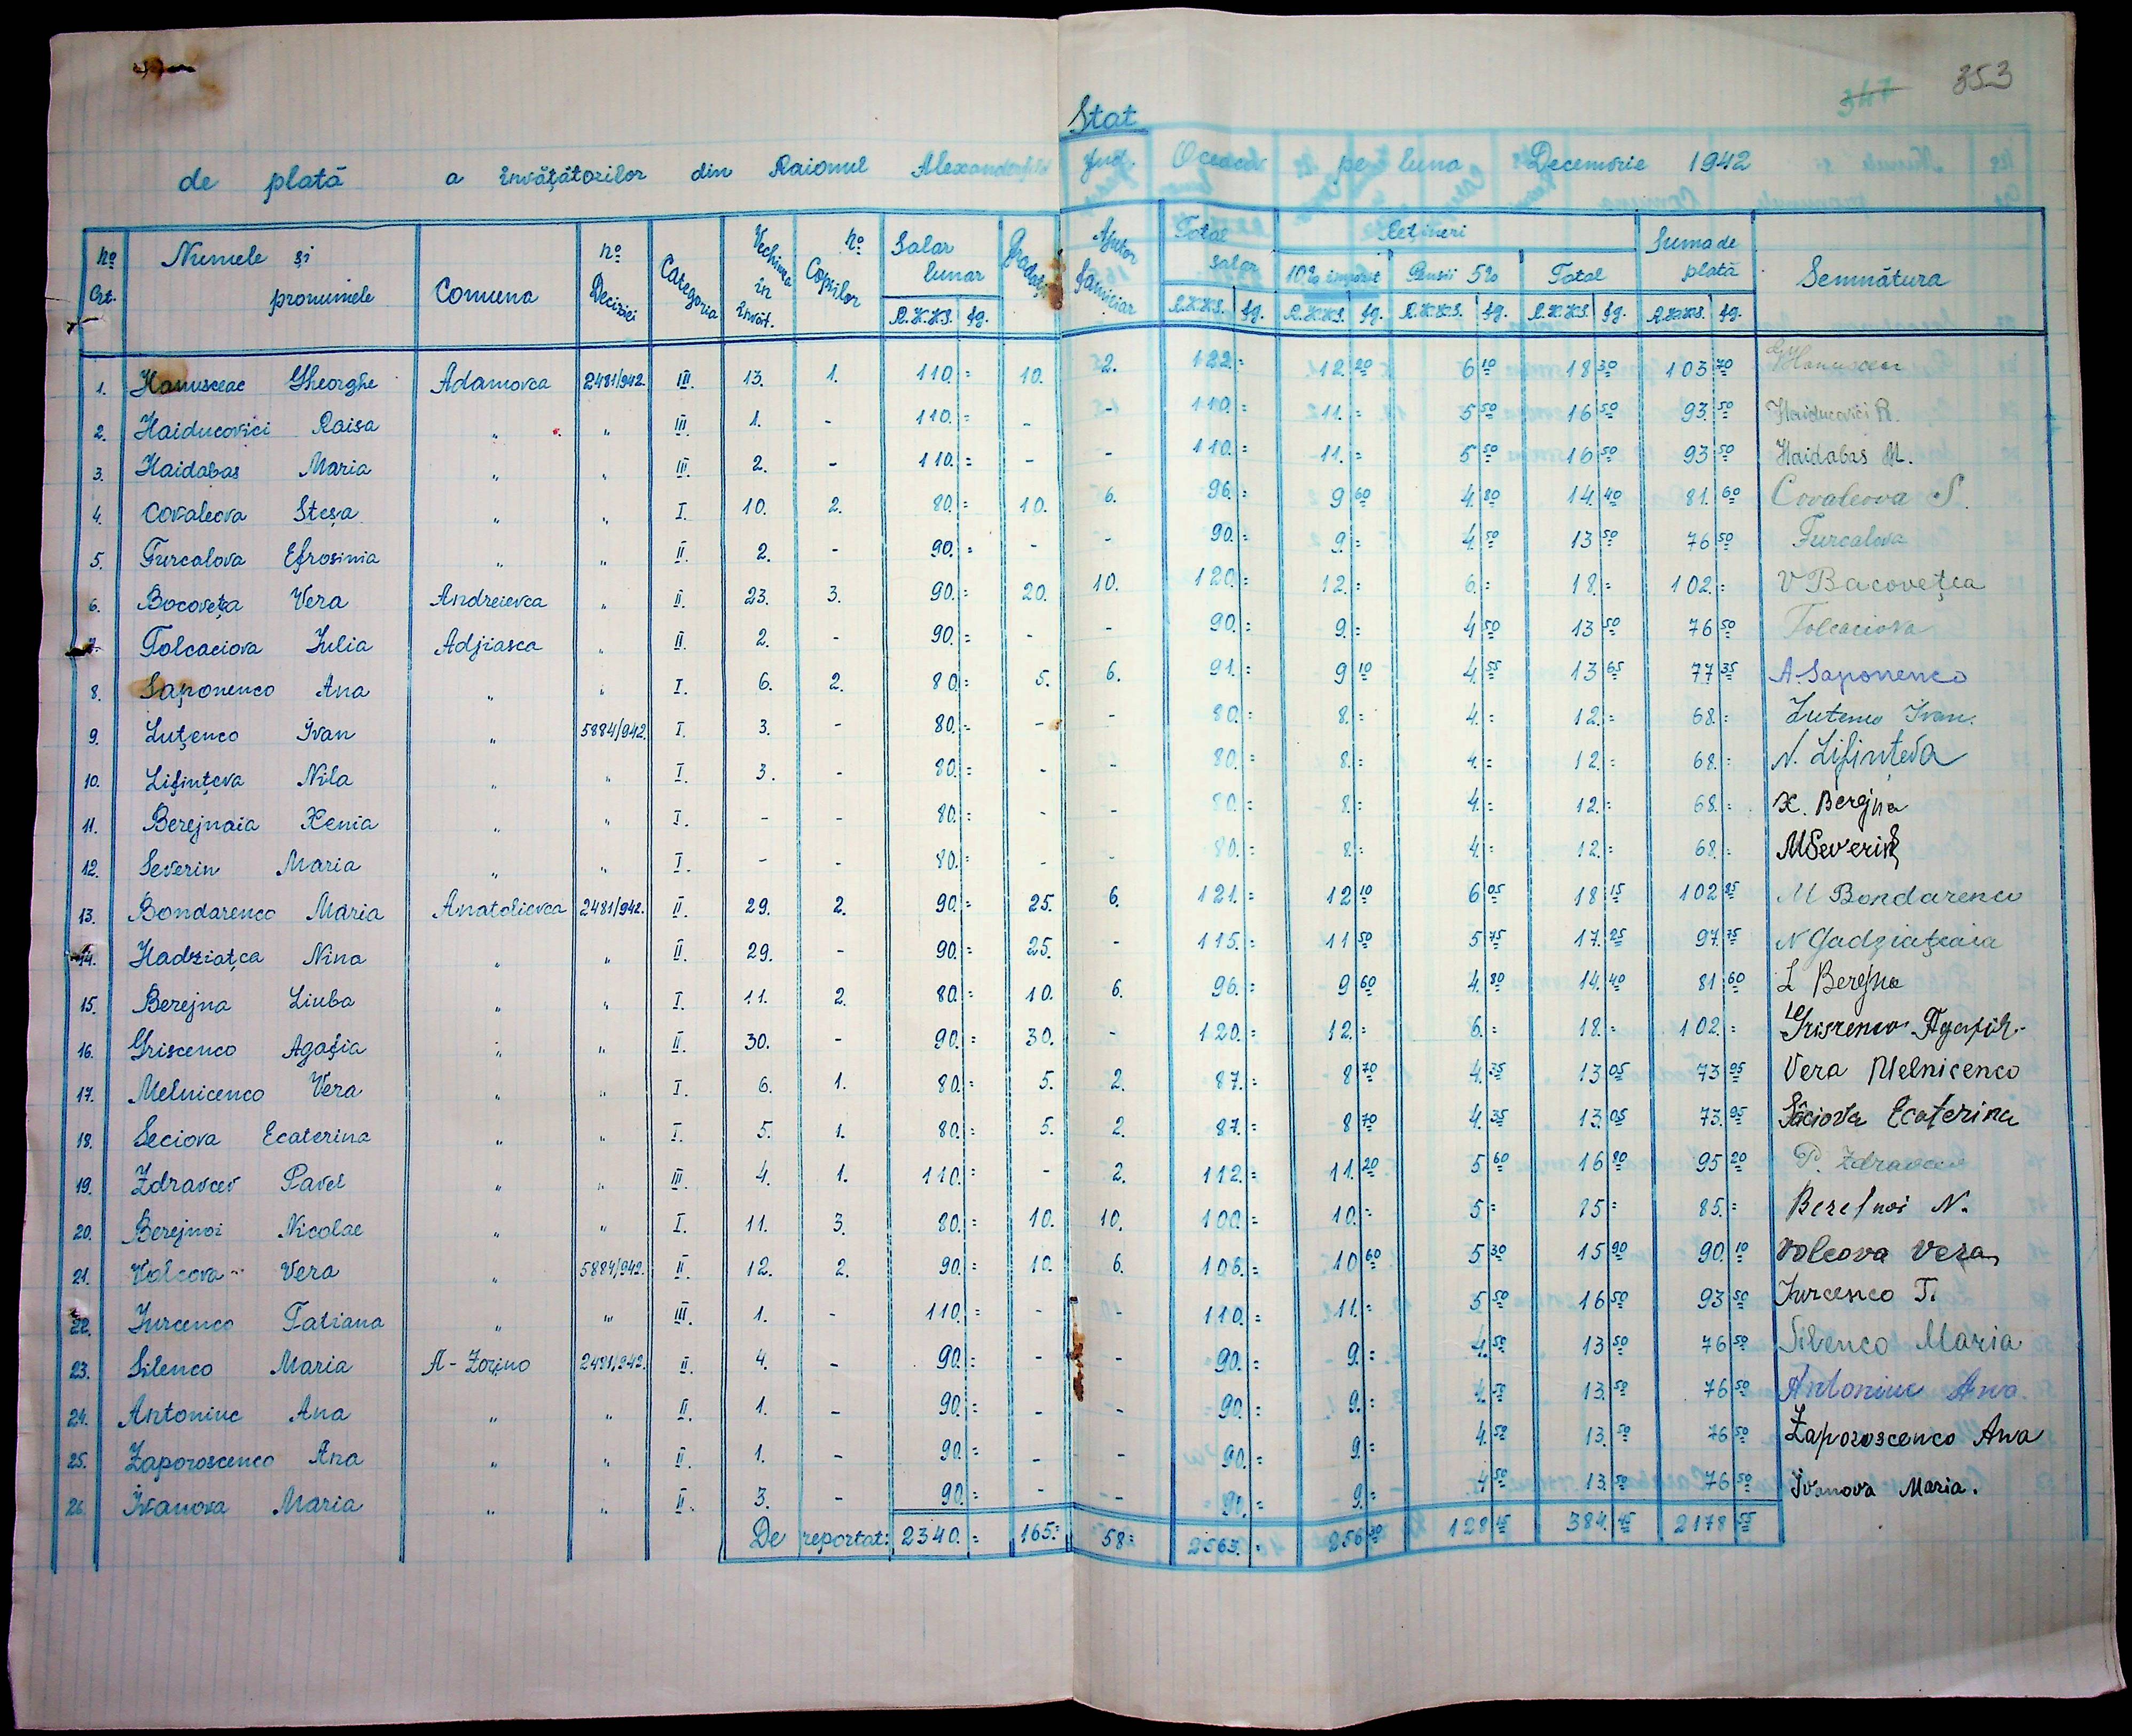 353
347
Stat
de plată a învățătorilor din Raionul Alexanderfeld Jud. Oceacov pe luna Decembrie 1942
No Crt. Numele și pronumele Comuna No Deciziei Categoria Vechimea în învăț. No Copiilor Salar lunar R.K.K.S. fg. Gradații Ajutor familiar Total salar R.K.K.S. fg. Rețineri 10% impozit R.K.K.S. fg. Pensii 5% R.K.K.S. fg. Total R.K.K.S. fg. Suma de plată R.K.K.S. fg. Semnătura
1. Hanusceac Gheorghe Adamovca 2481/942. III. 13. 1. 110.= 10. 2. 122.= 12.20 6 10 18 30 103 70
2. Haiducovici Raisa " " III. 1. - 110.= - - 110.= 11.= 5 50 16 50 93.50 Haiducovici R.
3. Haidabas Maria " " III. 2. - 110.= - - 110.= 11.= 5 50 16 50 93 50 Haidabas M.
4. Covaleova Steșa " " I. 10. 2. 80.= 10. 6. 96.= 9 60 4.80 14.40 81.60 Covaleova S.
5. Turcalova Efrosinia " " II. 2. - 90.= - - 90.= 9.= 4.50 13 50 76 50 Turcalova
6. Bocovețca Vera Andreievca " II. 23. 3. 90.= 20. 10. 120.= 12.= 6.= 18.= 102.= V Bacovețca
7. Tolcaciova Iulia Adjiasca " II. 2. - 90.= - - 90.= 9.= 4 50 13 50 76 50 Tolcaciova
8. Saponenco Ana " " I. 6. 2. 80.= 5. 6. 91.= 9 10 4.55 13 65 77 35 A.Saponenco
9. Luțenco Ivan " 5884/942. I. 3. - 80.= - - 80.= 8.= 4.= 12.= 68.= Lutenco Ivan.
10. Lifințeva Nila " " I. 3. - 80.= - - 80.= 8.= 4.= 12.= 68.= N. Lifințeva
11. Berejnaia Xenia " " I. - - 80.= - - 80.= 8.= 4.= 12.= 68.= X. Berejna
12. Severin Maria " " I. - - 80.= - - 80.= 8.= 4.= 12.= 68.= MSeverin
13. Bondarenco Maria Anatolievca 2481/942. II. 29. 2. 90.= 25. 6. 121.= 12 10 6 05 18 15 102 85 M Bondarenco
14. Hadziațca Nina " " II. 29. - 90.= 25. - 115.= 11 50 5 75 17.25 97.75 N Gadziațcaia
15. Berejna Liuba " " I. 11. 2. 80.= 10. 6. 96.= 9 60 4.80 14.40 81 60 L Berejna
16. Griscenco Agafia " " II. 30. - 90.= 30. - 120.= 12.= 6.= 18.= 102.=
17. Melnicenco Vera " " I. 6. 1. 80.= 5. 2. 87.= 8 70 4.35 13 05 73 95 Vera Melnicenco
18. Seciova Ecaterina " " I. 5. 1. 80.= 5. 2. 87.= 8 70 4.35 13.05 73.95 Ecaterina
19. Zdravcev Pavel " " III. 4. 1. 110.= - 2. 112.= 11.20 5 60 16 80 95 20 P. Zdravcev
20. Berejnoi Nicolae " " I. 11. 3. 80.= 10. 10. 100.= 10.= 5= 15= 85.= Berejnoi N.
21. Volcova Vera " 5884/942. II. 12. 2. 90.= 10. 6. 106.= 10 60 5 30 15 90 90.10 Volcova Vera
22. Iurcenco Tatiana " " III. 1. - 110.= - - 110.= 11.= 5 50 16 50 93 50 Iurcenco T.
23. Silenco Maria A-Zorino 2481/942. II. 4. - 90.= - - 90.= 9.= 4.50 13 50 76 50 Silenco Maria
24. Antoniuc Ana " " II. 1. - 90.= - - 90.= 9.= 4.50 13.50 76 50 Antoniuc Ana.
25. Zaporoscenco Ana " " II. 1. - 90.= - - 90.= 9.= 4.50 13.50 76 50 Zaporoscenco Ana
26. Ivanova Maria " " II. 3. - 90.= - - 90.= 9.= 4 50 13.50 76 50 Ivanova Maria.
De reportat: 2340.= 165.= 58= 2563.= 256 30 128 15 384.45 2178 55